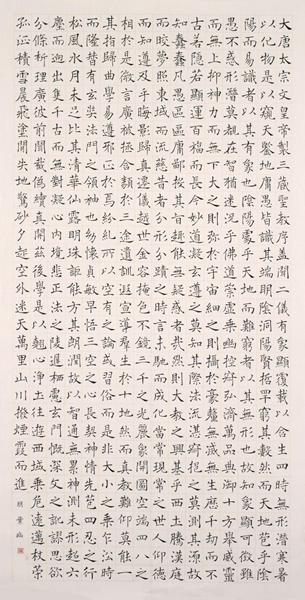 大唐太宗文皇帝製三藏聖教序蓋聞二儀有像顯覆載以含生四時無形潛寒暑
以化物是以窺天鑒地庸愚皆識其端明陰洞陽賢哲罕窮其數然而天地苞乎陰
陽而易識者以其有像也陰陽處乎天地而難窮者以其無形也故知像顯可徵雖
愚不惑形潛莫覩在智猶迷況乎佛道崇虛乘幽控寂弘濟萬品典御十方舉威靈
而無上抑神力而無下大之則彌於宇宙細之則攝於毫釐無滅無生歷千劫而不
古若隱若顯運百福而長今妙道凝玄遵之莫知其際法流湛寂挹之莫測其源故
知蠢蠢凡愚區區庸鄙投其旨趣能無疑惑者哉然則大教之興基乎西土騰漢庭
而皎夢照東域而流慈昔者分形分跡之時言未馳而成化當常現常之世人仰德
而知遵及乎晦影歸真遷儀越世金容掩色不鏡三千之光麗象開圖空端四八之
相於是微言廣被拯含類於三途遺訓遐宣導群生於十地然而真教難仰莫能一
其指歸曲學易遵邪正於焉紛糺所以空有之論或習俗而是非大小之乘乍沿時
而隆替有玄奘法門之領袖也幼懷貞敏早悟三空之心長契神情先苞四忍之行
松風水月未足比其清華仙露明珠詎能方其朗潤故以智通無累神測未形超六
塵而迥出隻千古而無對凝心內境悲正法之陵遲栖慮玄門慨深文之訛謬思欲
分條析理廣彼前聞截偽續真開茲後學是以翹心淨土往遊西域乘危遠邁杖策
孤征積雪晨飛塗閒失地驚砂夕起空外迷天萬里山川撥煙霞而進